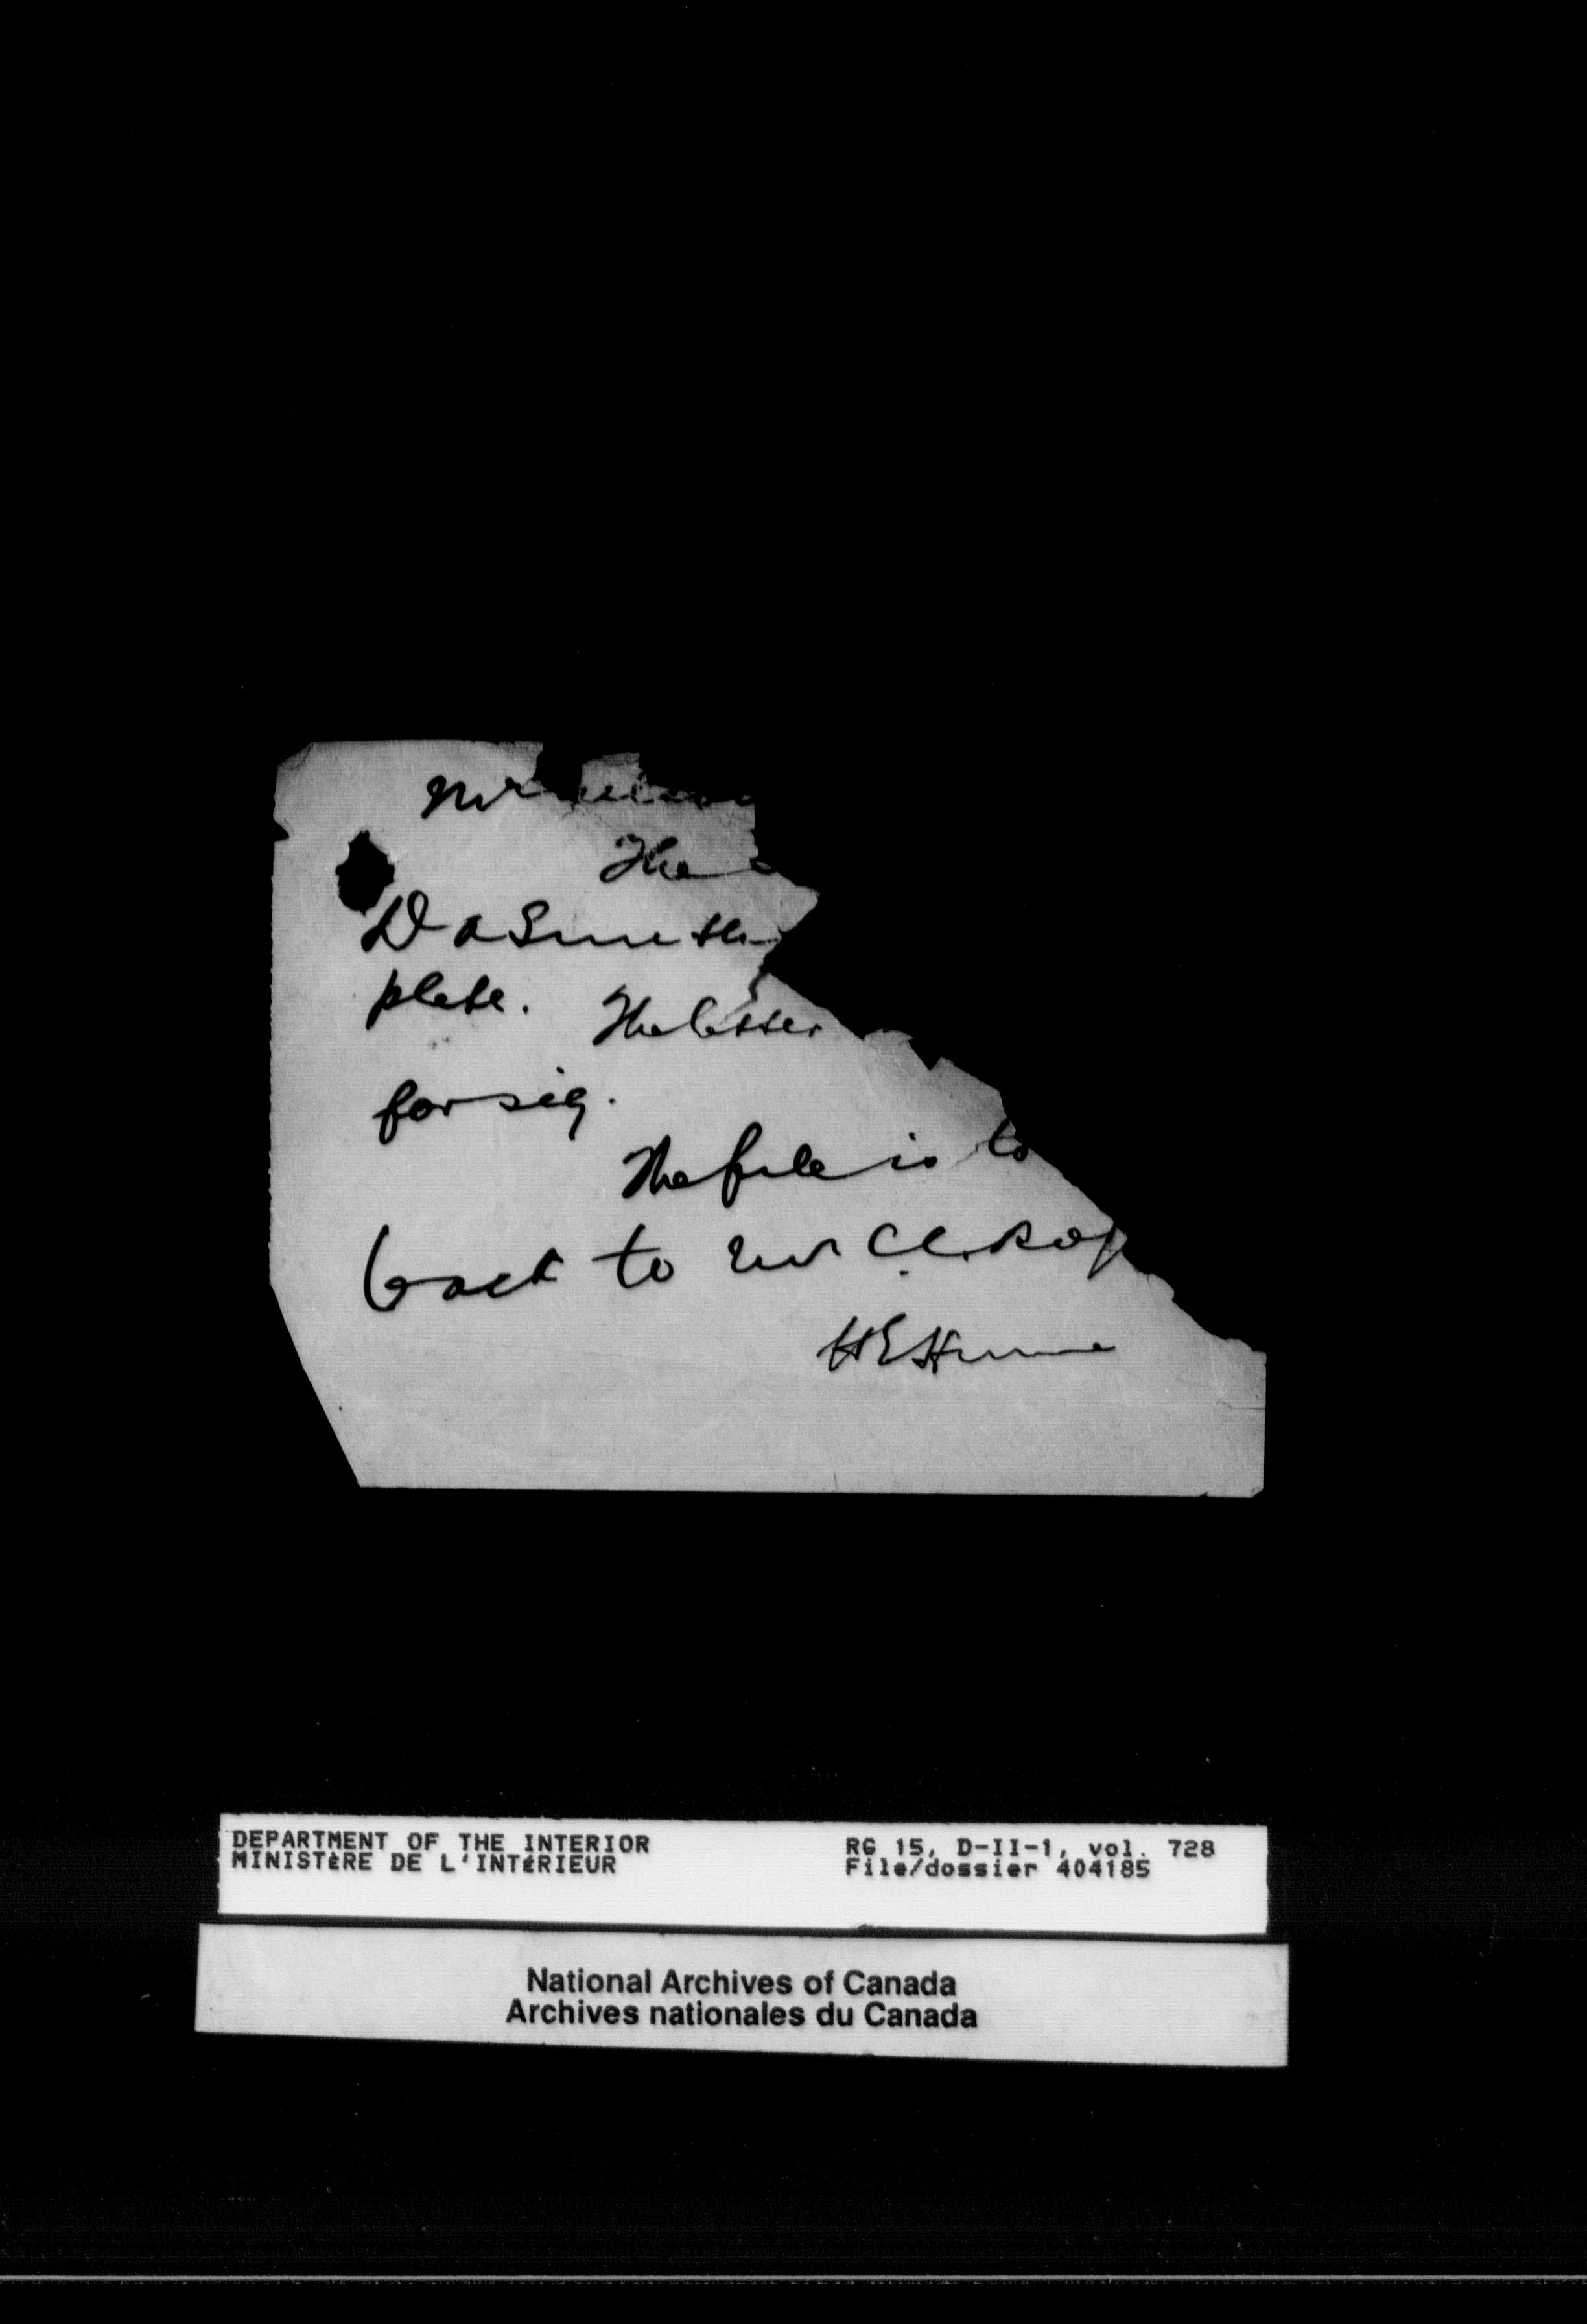 Mr
The
D A Smith
plete. The letter
for sig.
The file is to
back to Mr C.
H E Hume
DEPARTMENT OF THE INTERIOR
MINISTÈRE DE L'INTÉRIEUR
RG 15, D-II-1, vol. 728
File/dossier 404185
National Archives of Canada
Archives nationales du Canada